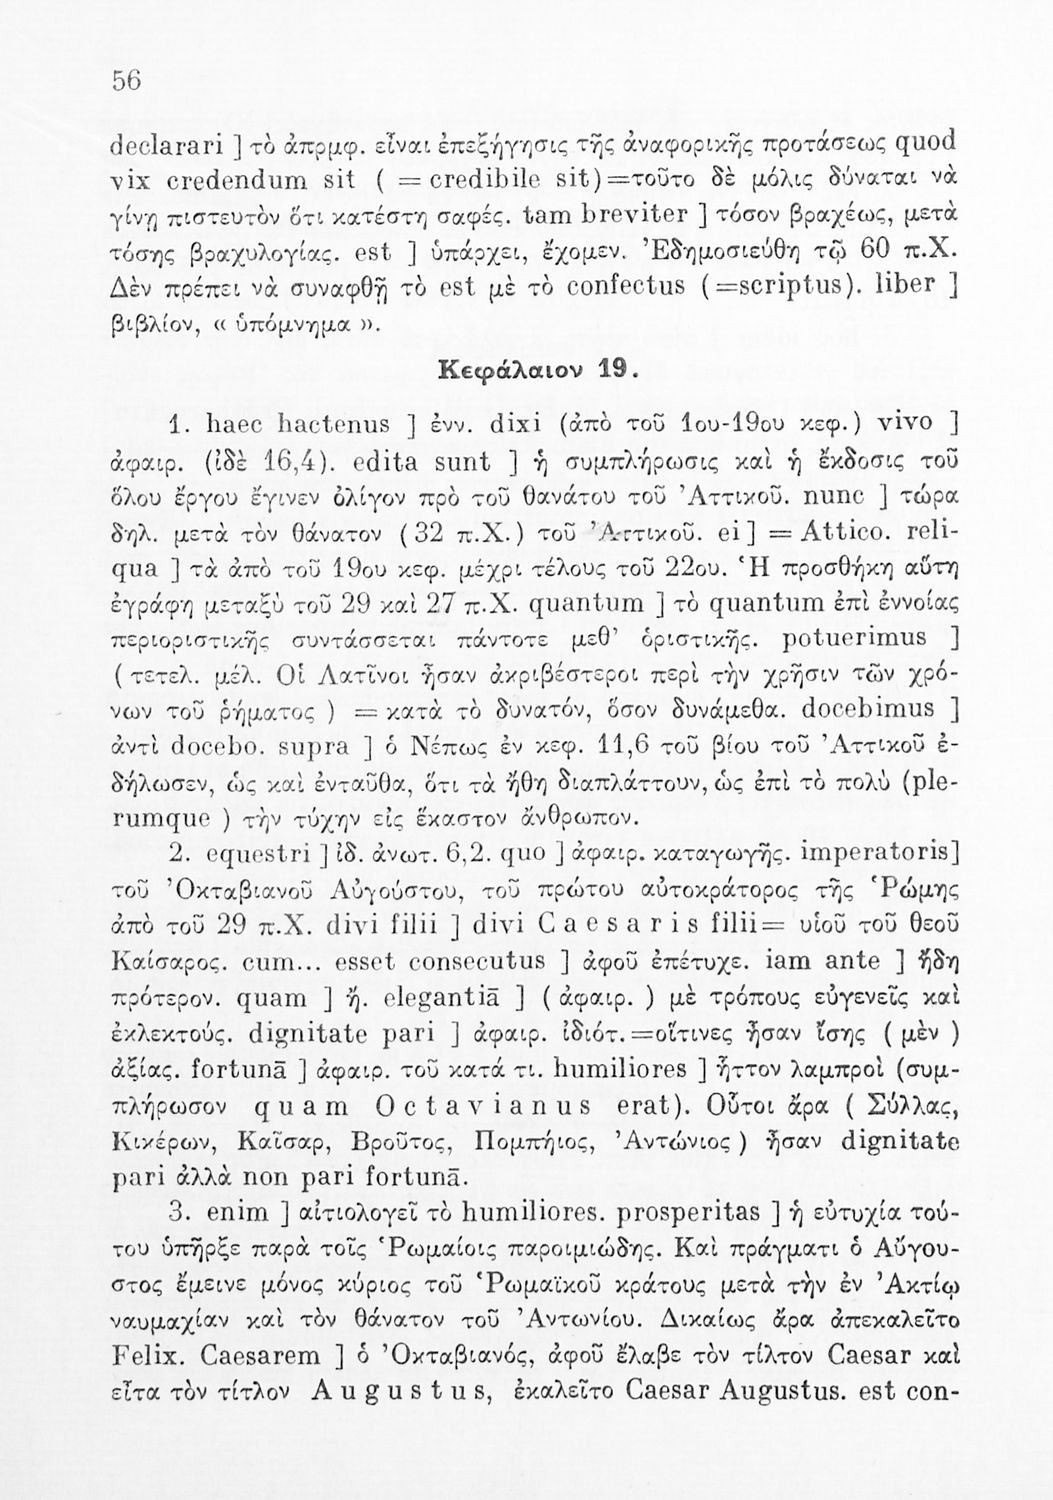 56
declarari ] τὸ ἀπρμφ. εἶναι ἐπεξήγησις τῆς ἀναφορικῆς προτάσεως quod
vix credendum sit ( = credibile sit)=τοῦτο δὲ μόλις δύναται νὰ
γίνῃ πιστευτὸν ὅτι κατέστη σαφές. tam breviter ] τόσον βραχέως, μετὰ
τόσης βραχυλογίας. est ] ὑπάρχει, ἔχομεν. Ἐδημοσιεύθη τῷ 60 π.Χ.
Δὲν πρέπει νὰ συναφθῇ τὸ est μὲ τὸ confectus (=scriptus). liber ]
βιβλίον, « ὑπόμνημα ».
Κεφάλαιον 19.
1. haec hactenus ] ἐνν. dixi (ἀπὸ τοῦ 1ου-19ου κεφ.) vivo ]
ἀφαιρ. (ἰδὲ 16,4). edita sunt ] ἡ συμπλήρωσις καὶ ἡ ἔκδοσις τοῦ
ὅλου ἔργου ἔγινεν ὀλίγον πρὸ τοῦ θανάτου τοῦ Ἀττικοῦ. nunc ] τώρα
δηλ. μετὰ τὸν θάνατον (32 π.Χ.) τοῦ Ἀττικοῦ. ei ] = Attico. reli-
qua ] τὰ ἀπὸ τοῦ 19ου κεφ. μέχρι τέλους τοῦ 22ου. Ἡ προσθήκη αὕτη
ἐγράφη μεταξὺ τοῦ 29 καὶ 27 π.Χ. quantum ] τὸ quantum ἐπὶ ἐννοίας
περιοριστικῆς συντάσσεται πάντοτε μεθ' ὁριστικῆς. potuerimus ]
( τετελ. μέλ. Οἱ Λατῖνοι ἦσαν ἀκριβέστεροι περὶ τὴν χρῆσιν τῶν χρό-
νων τοῦ ῥήματος ) = κατὰ τὸ δυνατόν, ὅσον δυνάμεθα. docebimus ]
ἀντὶ docebo. supra ] ὁ Νέπως ἐν κεφ. 11,6 τοῦ βίου τοῦ Ἀττικοῦ ἐ-
δήλωσεν, ὡς καὶ ἐνταῦθα, ὅτι τὰ ἤθη διαπλάττουν, ὡς ἐπὶ τὸ πολὺ (ple-
rumque ) τὴν τύχην εἰς ἕκαστον ἄνθρωπον.
2. equestri ] ἰδ. ἀνωτ. 6,2. quo ] ἀφαιρ. καταγωγῆς. imperatoris]
τοῦ Ὀκταβιανοῦ Αὐγούστου, τοῦ πρώτου αὐτοκράτορος τῆς Ῥώμης
ἀπὸ τοῦ 29 π.Χ. divi filii ] divi Caesaris filii= υἱοῦ τοῦ θεοῦ
Καίσαρος. cum... esset consecutus ] ἀφοῦ ἐπέτυχε. iam ante ] ἤδη
πρότερον. quam ] ἤ. elegantiā ] ( ἀφαιρ. ) μὲ τρόπους εὐγενεῖς καὶ
ἐκλεκτούς. dignitate pari ] ἀφαιρ. ἰδιότ.=οἵτινες ἦσαν ἴσης ( μὲν )
ἀξίας. fortunā ] ἀφαιρ. τοῦ κατά τι. humiliores ] ἧττον λαμπροὶ (συμ-
πλήρωσον quam Octavianus erat). Οὗτοι ἄρα ( Σύλλας,
Κικέρων, Καῖσαρ, Βροῦτος, Πομπήιος, Ἀντώνιος ) ἦσαν dignitate
pari ἀλλὰ non pari fortunā.
3. enim ] αἰτιολογεῖ τὸ humiliores. prosperitas ] ἡ εὐτυχία τού-
του ὑπῆρξε παρὰ τοῖς Ῥωμαίοις παροιμιώδης. Καὶ πράγματι ὁ Αὔγου-
στος ἔμεινε μόνος κύριος τοῦ Ῥωμαϊκοῦ κράτους μετὰ τὴν ἐν Ἀκτίῳ
ναυμαχίαν καὶ τὸν θάνατον τοῦ Ἀντωνίου. Δικαίως ἄρα ἀπεκαλεῖτο
Felix. Caesarem ] ὁ Ὀκταβιανός, ἀφοῦ ἔλαβε τὸν τίλτον Caesar καὶ
εἶτα τὸν τίτλον Augustus, ἐκαλεῖτο Caesar Augustus. est con-